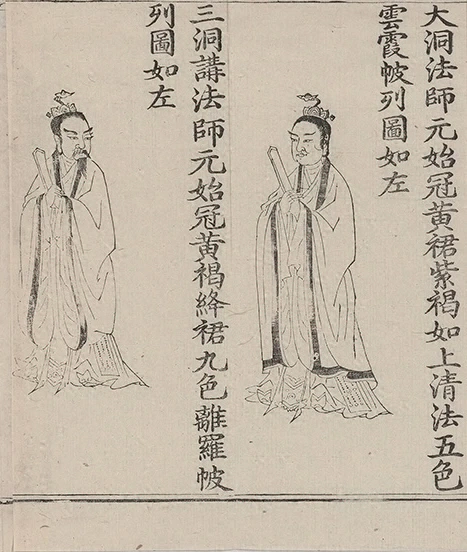 大洞法師元始冠黃裙紫褐如上清法五色
雲霞帔列圖如左
三洞講法師元始冠黃褐絳裙九色離羅帔
列圖如左